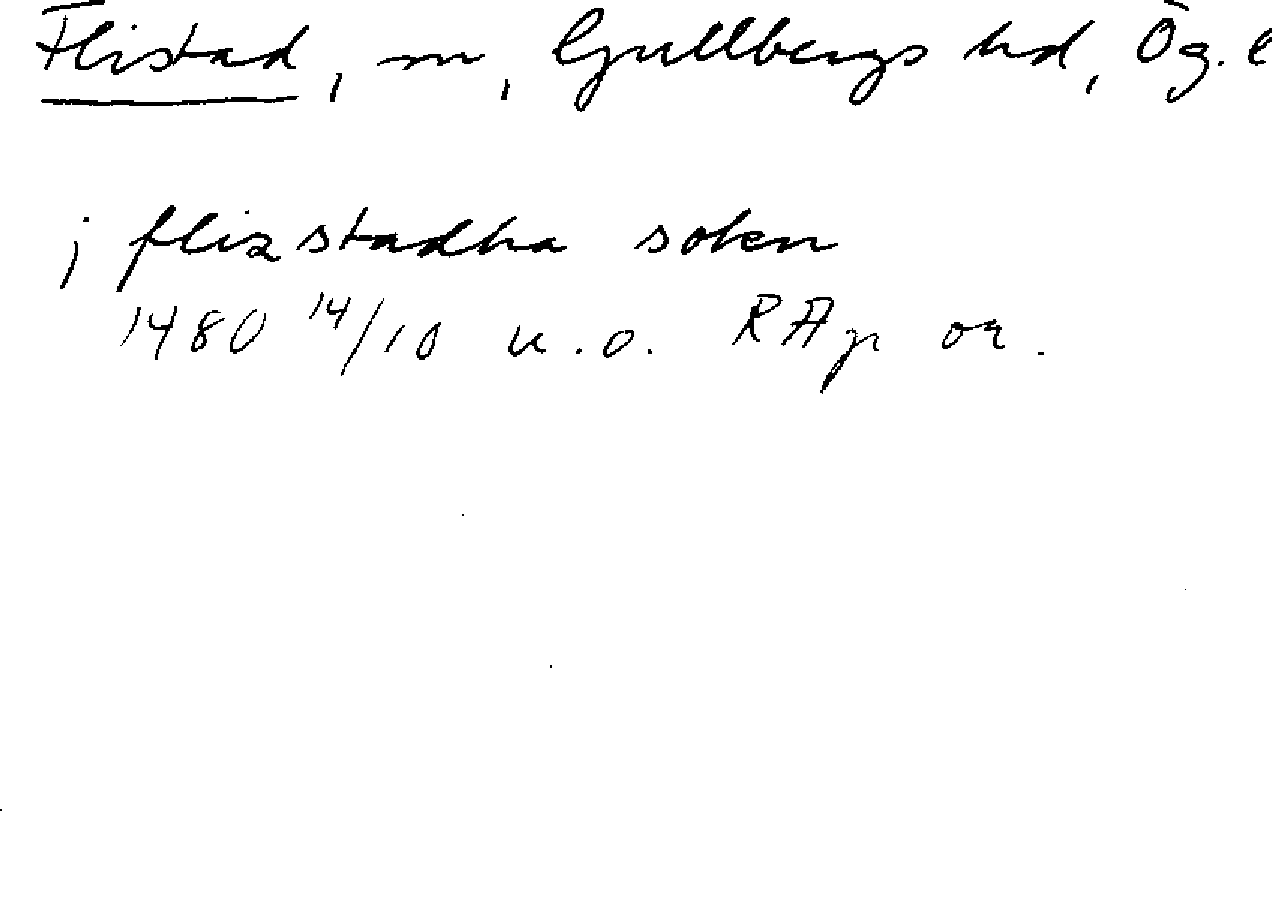 Flistad, sn, Gullbergs hd, Ög. l
j flizstadha sokn
1480 14/10 u.o. RAp or.